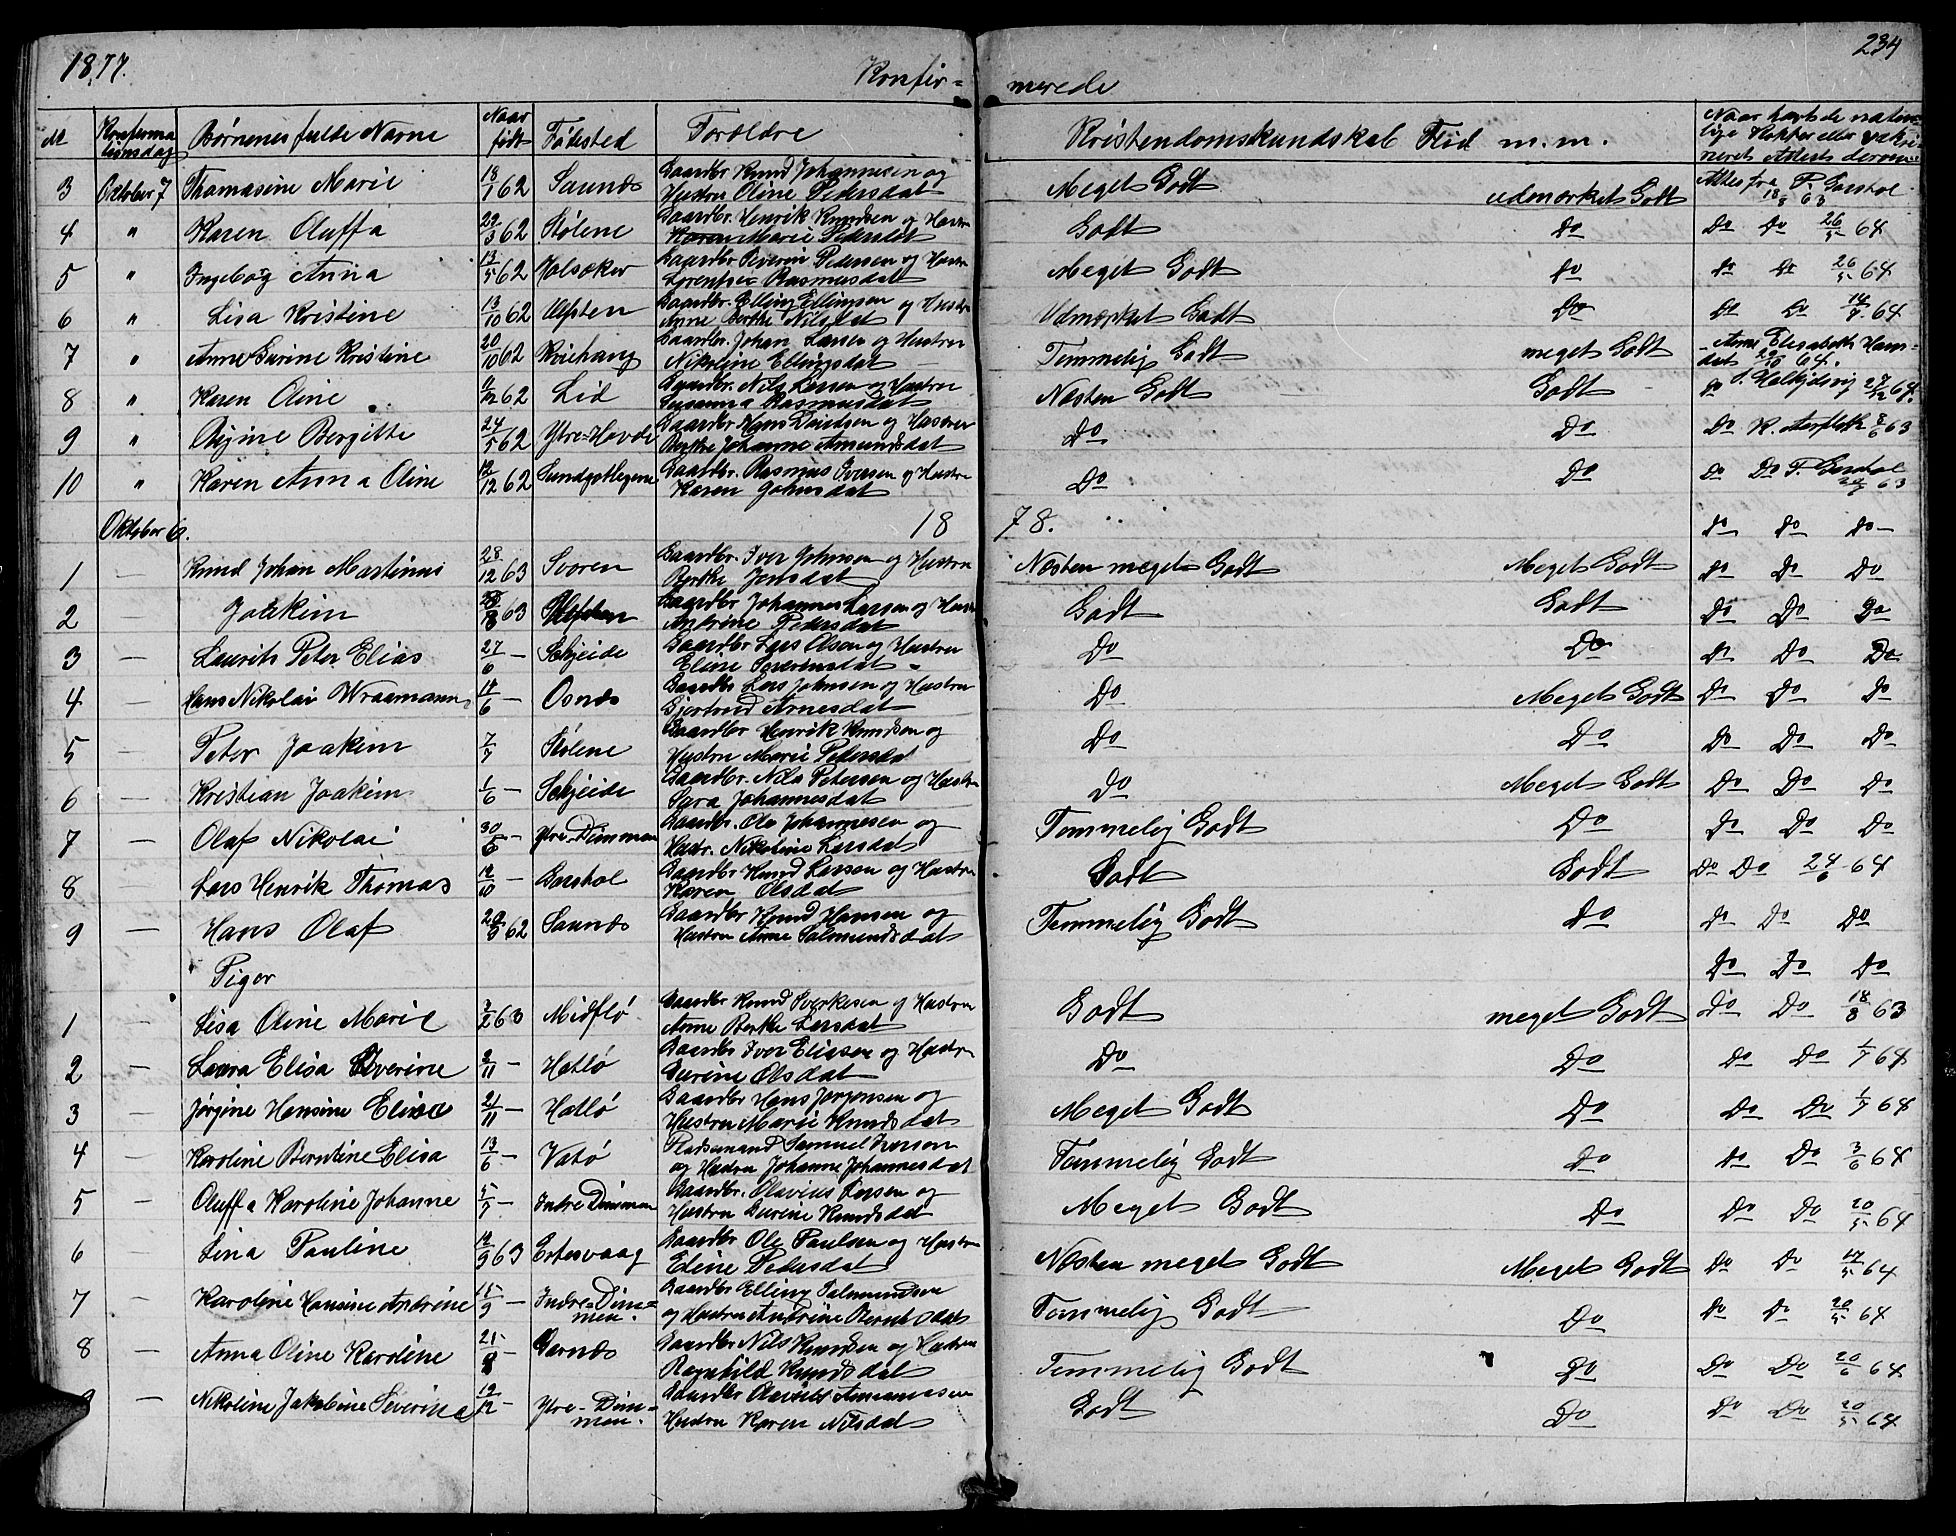 1877. Konfir- merede 234
№ Konfirmationsdag Børnenes fulde Navne Naar født Fødested Forældre Kristendomskundskab Flid m.m. Naar havt de naturlige Kopper eller vakcineret Attest derom
3 Oktober 7 Thomasine Marie 18/1 62 Saunæs Gaardbr Knud Johannesen og Hustru Oline Pedersdat Meget Godt udmærket Godt Attest fra P. Garshol 18/8 63
4 " Karen Oluffa 29/3 62 Stølene Gaardbr. Henrik Knudsen og Hustru Marie Pedersdat Godt Do Do Do 26/5 64
5 " Ingeborg Anna 13/5 62 Holsæker Gaardbr Severin Pedersen og Hustru Lorentse Rasmusdat Meget Godt Do Do Do 26/5 64
6 " Lisa Kristine 13/10 62 Ulfsten Gaardbr. Elling Ellingsen og Hustru Anne Berthe Nilsdat Udmærket Godt Do Do Do 64
7 " Anne Gurine Kristine 20/10 62 Kviehaug Gaardbr. Johan Larsen og Hustru Nikoline Ellingsdat Temmelig Godt meget Godt - Anne Elisabeth Hansdat 64.
8 " Karen Oline 62 Lid Gaardbr. Nils Larsen og Hustru Susanna Rasmusdat Næsten Godt Godt Do 27/12 64.
9 " Bergitte 24/5 62 Ytre-Hovde Gaardbr Hans Davidsen og Hustru Berthe Johanne Amundsdat Do Do Do K. Aarfleth 63
10 " Karen Anna Oline 12/12 62 Gaardbr. Rasmus Iversen og Hustru Karen Johnsdat Do Do Do Do P. Garshol 63
Oktober 6. 18 78. Do Do Do
1 — Knud Johan Martinus 28/12 63 Svoren Gaardbr. Iver Johnsen og Hustru Berthe Jensdat Næsten meget Godt Meget Godt Do Do Do
2 — Joakim 63 Ulfsten Gaardbr Johannes Larsen og Hustru Andrine Pedersdat Godt Godt Do Do Do
3 — Laurits Peter Elias 27/6 — Skjeide Gaardbr Lars Olsen og Hustru Eline Severinsdat Do Do Do Do Do
4 — Hans Nikolai Wraamann 14/6 — Osnæs Gaardbr Lars Johnsen og Hustru Gjertrud Arnesdat Do Meget Godt Do Do Do
5 — Peter Joakim 7/7 Stølene Gaardbr Henrik Knudsen og Hustru Marie Pedersdat Do Do Do Do Do
6 — Kristian Joakim 1/6 — Skjeide Gaardbr. Nils Petersen og Hustru Sara Johannesdat Do Meget Godt Do Do Do
7 — Olaf Nikolai 30/6 — Ytre-Dimmen Gaardbr. Ole Johannesen og Hustr. Nikoline Larsdat Temmelig Godt Do Do Do Do
8 — Lars Henrik Thomas 12/10 — Garshol Gaardbr Knud Larsen og Hustru Karen Olsdat Godt Godt Do Do 24/6 64
9 — Hans Olaf 62 Saunæs Gaardbr Knud Hansen og Hustru Anne Salmundsdat Temmelig Godt Do Do Do Do
Piger Do Do Do
1 — Lisa Oline Marie 3/2 63 Midflø Gaardbr Knud Sverkesen og Hustru Anne Berthe Larsdat Godt meget Godt Do Do 18/8 63
2 — Laura Elisa Severine 2/11 — Hatlø Gaardbr Iver Eliasen og Hustru Gurine Olsdat Do Do Do Do 1/7 64
3 — Jørgine Hansine Elisa 21/11 — Hatlø Gaardbr Hans Jørgensen og Hustru Marie Knudsdat Meget Godt Do Do Do 1/7 64
4 — Karoline Berntine Elisa 13/6 — Vatø Pladsemand Samuel Iversen og Hustru Johanne Johannesdat Temmelig Godt Do Do Do 3/6 64
5 — Oluffa Karoline Johanne 5/7 — Indre Dimmen Gaardbr. Olavius Larsen og Hustru Gurine Knudsdat Meget Godt Do Do Do 20/5 64
6 — Lina Pauline 12/9 63 Ertesvaag Gaardbr Ole Paulsen og Hustru Eline Pedersdat Næsten meget Godt Meget Godt Do Do 17/5 64
7 — Karoline Hansine Andrine 15/9 — Indre-Dimmen. Gaardbr Elling Salmundsen og Hustru Andrine Berntsdat Temmelig Godt Do Do Do 20/5 64
8 — Anna Oline Karoline — Garnæs Gaardbr Nils Knudsen og Hustru Ragnhild Knudsdat Temmelig Godt Do Do Do 20/6 64
— Nikoline Jakobine Severina 19/12 — Ytre-Dimmen. Gaardbr Hustru Karen Nilsdat Godt Do Do Do 20/5 64